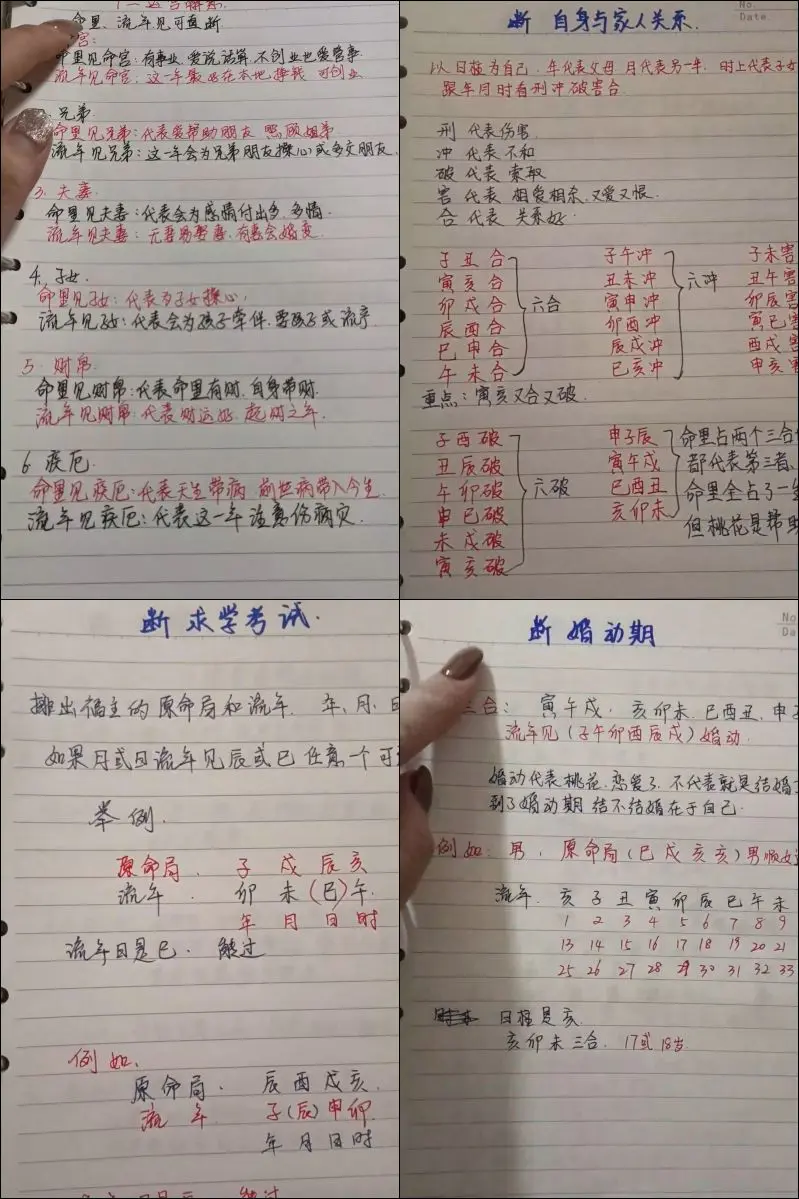 命里、流年见可直断
宫:
命里见命宫:有事业,爱说话算,不创业也爱管事
流年见命宫:这一年最好在本地挣钱 可创业
兄弟
命里见兄弟:代表爱帮助朋友 照顾姐弟
流年见兄弟:这一年会为兄弟朋友操心或多交朋友.
3. 夫妻
命里见夫妻:代表会为感情付出多,多情.
流年见夫妻: 无妻易娶妻,有妻会婚变.
4. 子女.
命里见子女:代表为子女操心,
流年见子女:代表会为孩子牵伴.要孩子或流产
5. 财帛
命里见财帛:代表命里有财,自身带财.
流年见财帛:代表财运好,起财之年.
6 疾厄
命里见疾厄:代表天生带病 前世病带入今生
流年见疾厄:代表这一年注意伤病灾.
断 自身与家人关系.
No.
Date.
以日柱为自己.年代表父母 月代表另一半.时上代表子女
跟年月时看刑冲破害合
刑 代表伤害.
冲 代表不和
破 代表 索取
害 代表 相爱相杀,又爱又恨.
合 代表 关系好.
子丑合 子午冲 子未害
寅亥合 丑未冲 丑午害
卯戌合 六合 寅申冲 六冲 卯辰害
辰酉合 卯酉冲 寅巳害
巳申合 辰戌冲 酉戌害
午未合 巳亥冲 申亥害
重点: 寅亥又合又破.
子酉破 申子辰 命里占两个三合
丑辰破 寅午戌 都代表第三者、
午卯破 六破 巳酉丑 命里全占了一生
申巳破 亥卯未 但桃花是帮助
未戌破
寅亥破
断 求学考试.
排出福主的原命局和流年. 年、月、日
如果月或日流年见辰或巳任意一个可
举例.
原命局. 子 戌 辰 亥
流年. 卯 未(巳)午.
年 月 日 时
流年日是巳. 能过
例如.
原命局. 辰 酉 戌 亥.
流 年 子(辰)申卯.
年 月 日 时
断 婚动期
No
Da
三合: 寅午戌. 亥卯未.巳酉丑.申子
流年见(子午卯酉辰戌)婚动.
婚动代表桃花.恋爱了.不代表就是结婚
到了婚动期 结不结婚在于自己.
例如: 男, 原命局(巳戌亥亥)男顺女
流年. 亥 子 丑 寅 卯 辰 巳 午 未
1 2 3 4 5 6 7 8 9
13 14 15 16 17 18 19 20 21
25 26 27 28 29 30 31 32 33
日柱是亥.
亥卯未三合. 17或18岁.